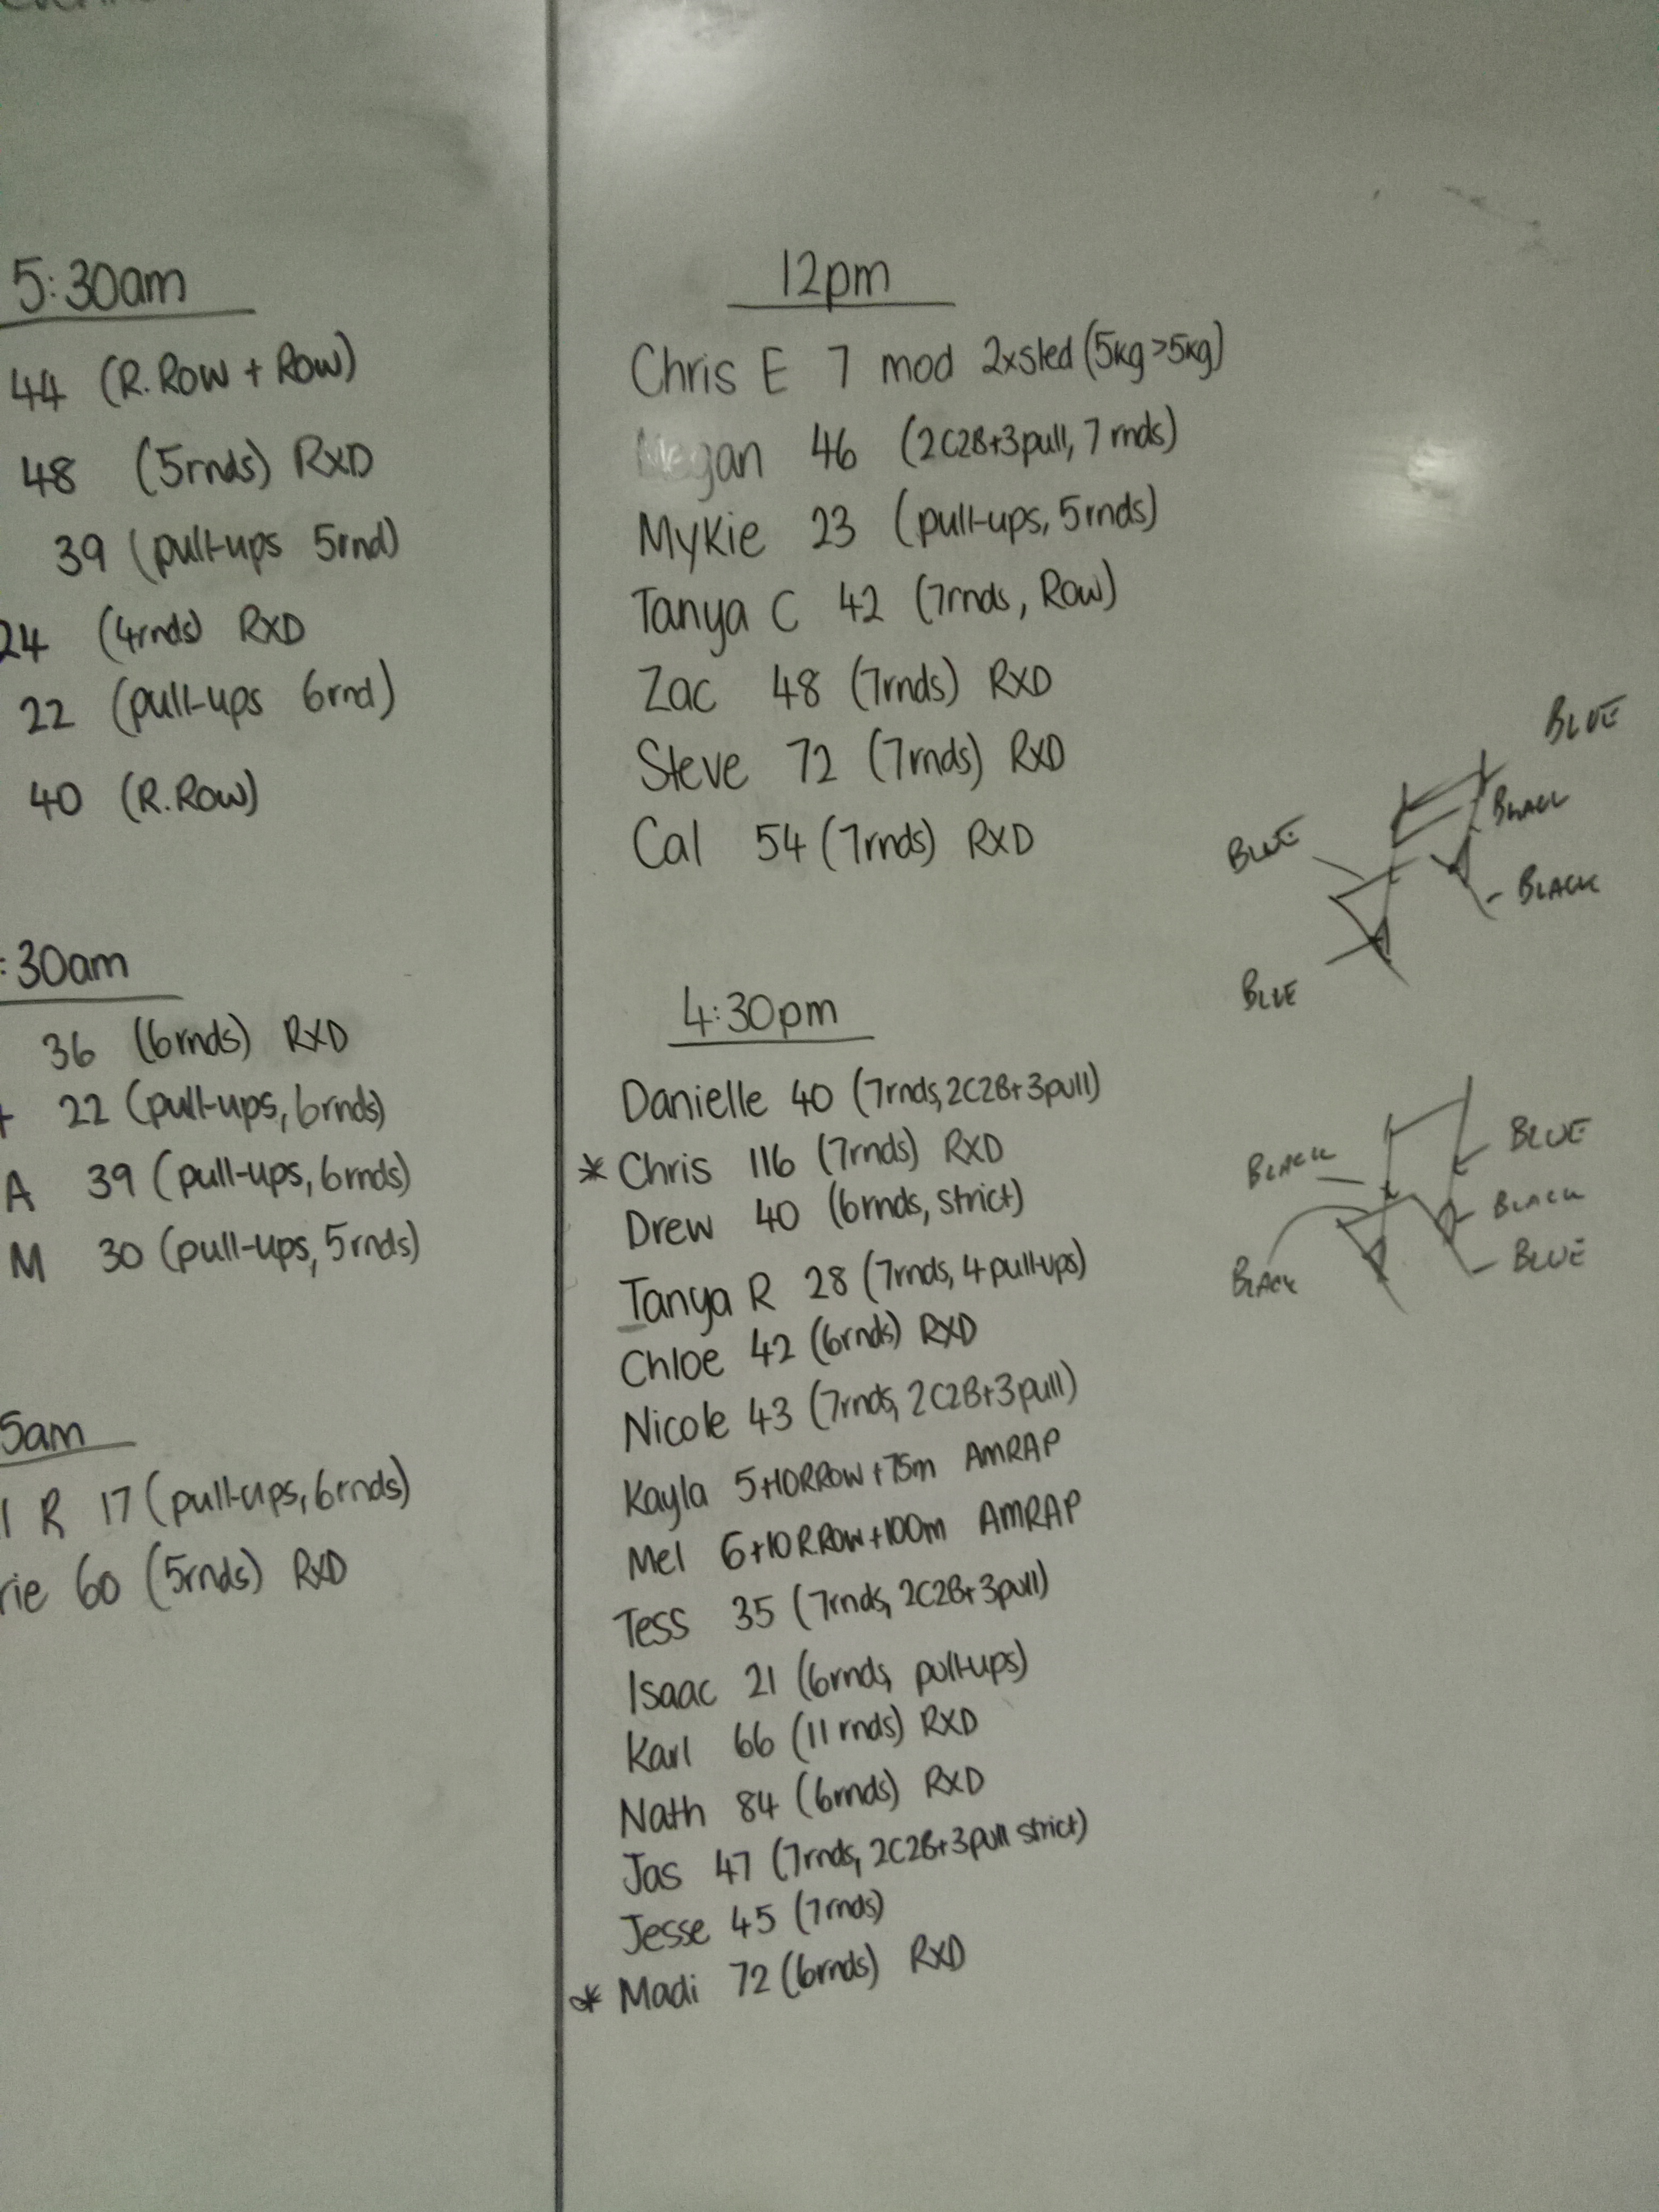 5:30am
44 (R.Row + Row)
48 (5rnds) RXD
39 (pull-ups 5rnd)
24 (4rnds) RXD
22 (pull-ups 6rnd)
40 (R.Row)
:30am
36 (6rnds) RXD
22 (pull-ups, 6rnds)
A 39 (pull-ups, 6rnds)
M 30 (pull-ups, 5rnds)
5am
R 17 (pull-ups, 6rnds)
rie 60 (5rnds) RXD
12pm
Chris E 7 mod 2xsled (5kg>5kg)
Megan 46 (2C2B+3pull, 7 rnds)
Mykie 23 (pull-ups, 5rnds)
Tanya C 42 (7rnds, Row)
Zac 48 (7rnds) RXD
Steve 72 (7rnds) RXD
Cal 54 (7rnds) RXD
4:30pm
Danielle 40 (7rnds, 2C2B+3pull)
* Chris 116 (7rnds) RXD
Drew 40 (6rnds, strict)
Tanya R 28 (7rnds, 4 pull-ups)
Chloe 42 (6rnds) RXD
Nicole 43 (7rnds, 2C2B+3pull)
Kayla 5+10RRow+75m AMRAP
Mel 6+10R.Row+100m AMRAP
Tess 35 (7rnds, 2C2B+3pull)
Isaac 21 (6rnds, pull-ups)
Karl 66 (11 rnds) RXD
Nath 84 (6rnds) RXD
Jas 47 (7rnds, 2C2B+3pull strict)
Jesse 45 (7rnds)
* Madi 72 (6rnds) RXD
BLUE
BLACK
BLUE
BLACK
BLUE
BLUE
BLACK
BLACK
BLACK
BLUE